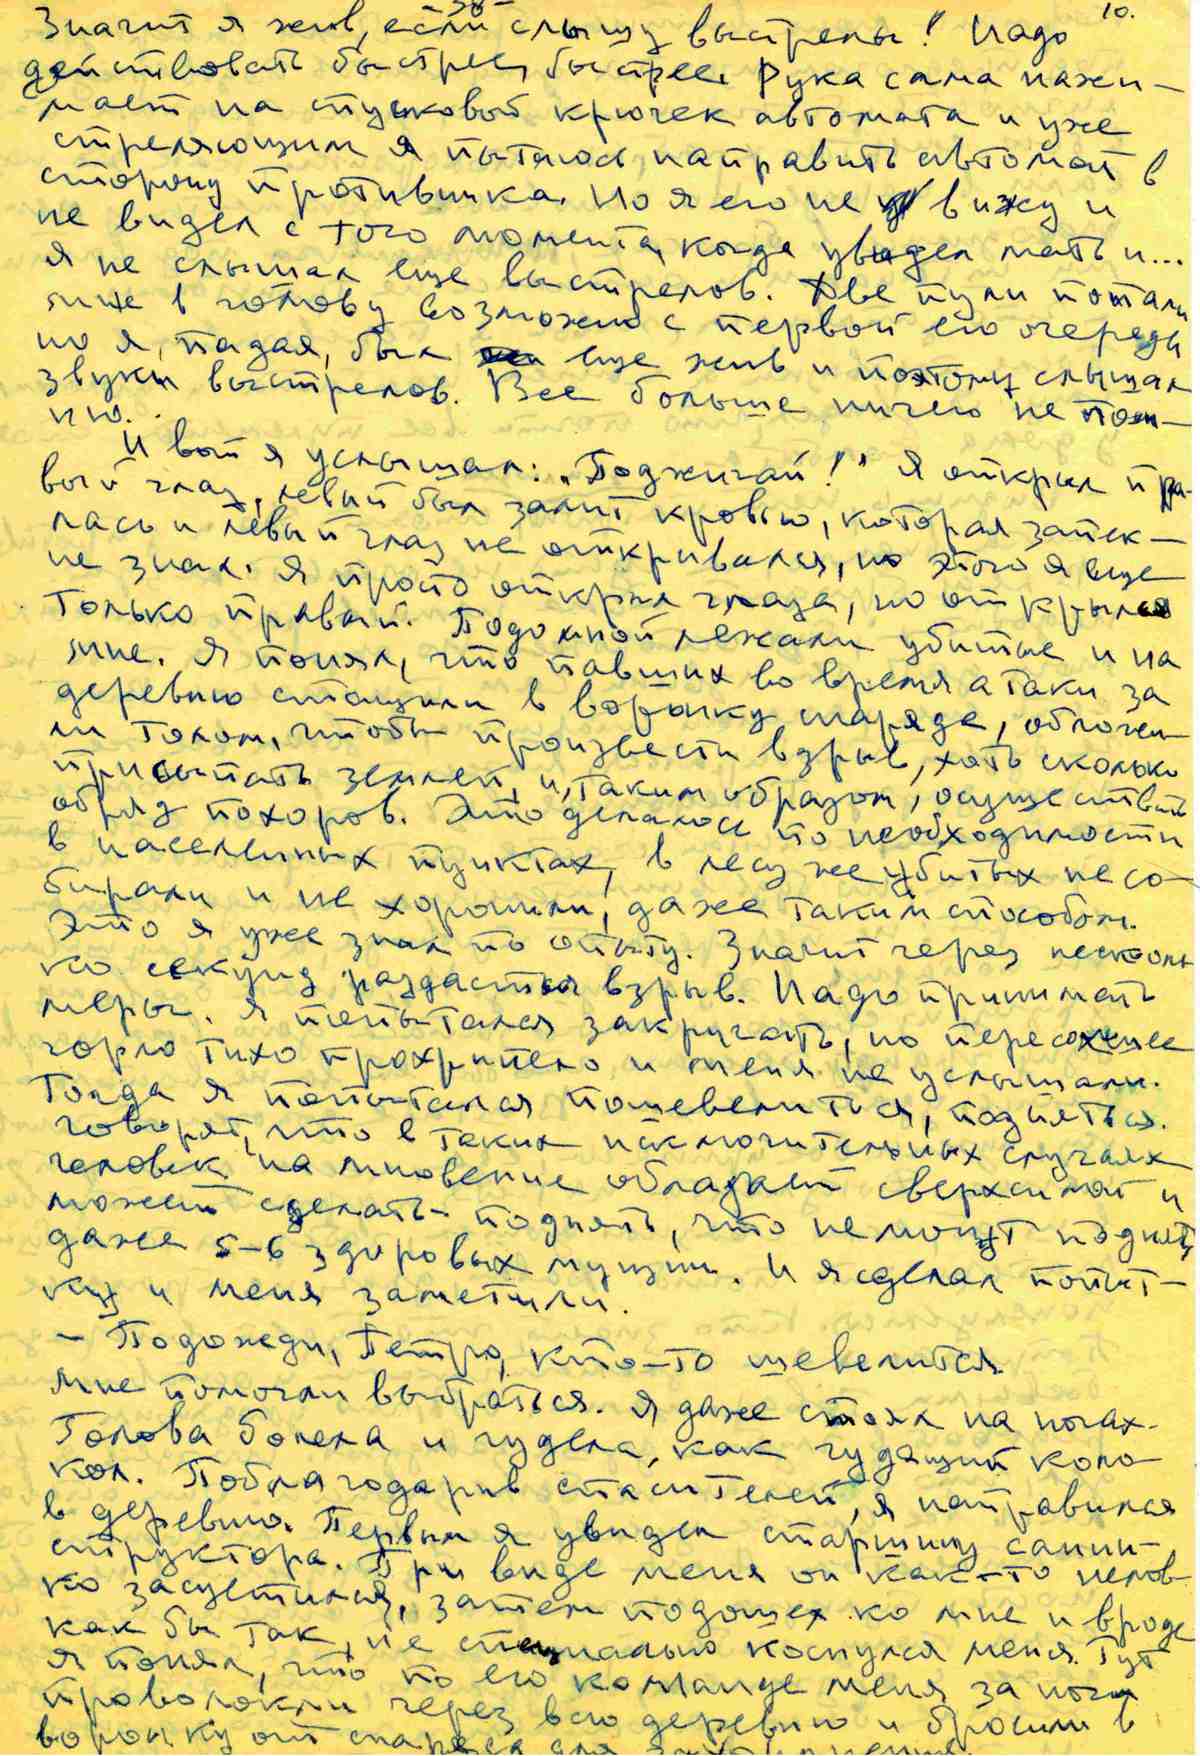 10.
Значит я жив, если слышу выстрелы! Надо
действовать быстрее, быстрее. Рука сама нажи-
мает на спусковой крючек автомата и уже
стреляющим я пытаюсь направить автомат в
сторону противника. Но я его не вижу и
не видел с того момента, когда увидел мать и...
я не слышал еще выстрелов. Две пули попали
мне в голову возможно с первой его очереди
но я, падая, был еще жив и поэтому слышал
звуки выстрелов. Все больше ничего не пом-
ню.
И вот я услышал: „Поджигай!" Я открыл пра-
вый глаз, левый был залит кровью, которая запек-
лась и левый глаз не открывался, но этого я еще
не знал. Я просто открыл глаза, но открылся
только правый. Подо мной лежали убитые и на
мне. Я понял, что павших во время атаки за
деревню стащили в воронку снаряда, обложи-
ли толом, чтобы произвести взрыв, хоть сколько
присыпать землей, и, таким образом, осуществить
обряд похоров. Это делалось по необходимости
в населенных пунктах, в лесу же убитых не со-
бирали и не хоронили, даже таким способом.
Это я уже знал по опыту. Значит через несколь
ко секунд раздастся взрыв. Надо принимать
меры. Я попытался закричать, но пересохшее
горло тихо прохрипело и меня не услышали.
Тогда я попытался пошевелиться, подняться.
Говорят, что в таких исключительных случаях
человек на мгновение обладает сверхсилой и
может сделать - поднять, что не могут поднять
даже 5-6 здоровых мужчин. И я сделал попыт-
ку и меня заметили.
- Подожди, Петро, кто-то шевелится
Мне помогли выбраться. Я даже стоял на ногах.
Голова болела и гудела, как гудящий коло-
кол. Поблагодарив спасителей, я направился
в деревню. Первым я увидел старшину санин-
структора. При виде меня он как-то нелов-
ко засуетился, затем подошел ко мне и вроде
как бы так, не специально коснулся меня. Тут
я понял, что по его команде меня за ноги
проволокли через всю деревню и бросили в
воронку от снаряда для